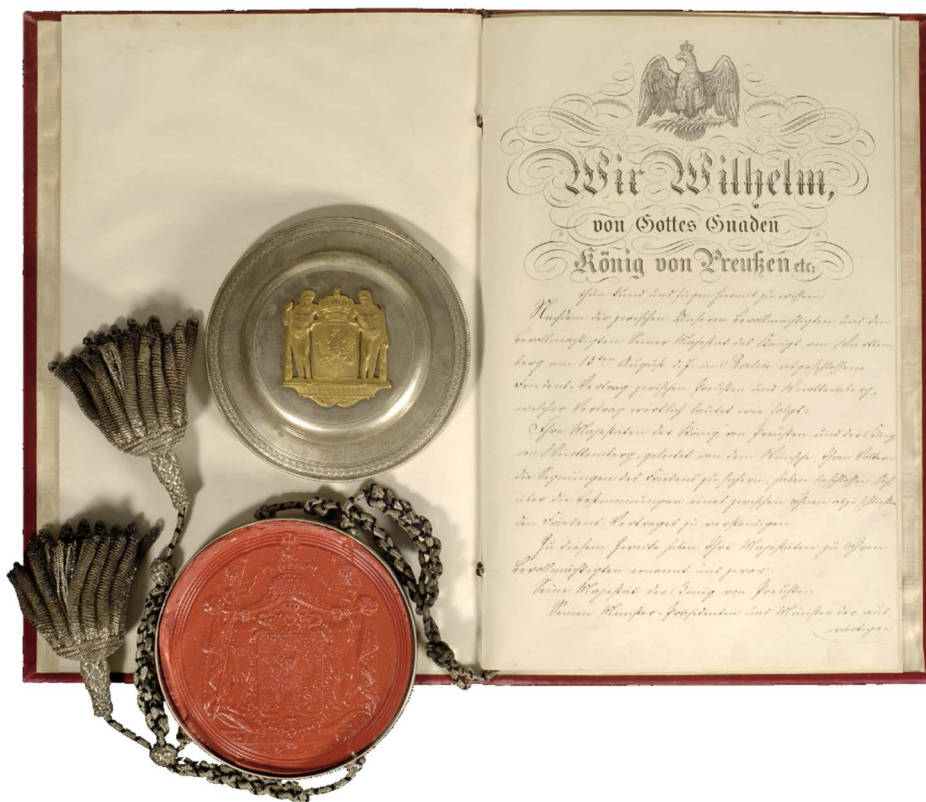 Wir Wilhelm,
von Gottes Gnaden
König von Preußen etc:
thun kund und fügen hiermit zu wissen:
Nachdem der zwischen Unseren Bevollmächtigten und den
Bevollmächtigten Seiner Majestät des Königs von Württem-
berg am 13ten August d. J. in Berlin abgeschlossene
Friedens-Vertrag zwischen Preußen und Württemberg,
welcher Vertrag wörtlich lautet wie folgt:
Ihre Majestäten der König von Preußen und der König
von Württemberg, geleitet von dem Wunsche, Ihren Völkern
die Segnungen des Friedens zu sichern, haben beschlossen, Sich
über die Bestimmungen eines zwischen Ihnen abzuschließen-
den Friedens-Vertrages zu verständigen.
Zu diesem Zwecke haben Ihre Majestäten zu Ihren
Bevollmächtigten ernannt und zwar:
Seine Majestät der König von Preußen
Seinen Minister-Präsidenten und Minister der aus-
wärtigen